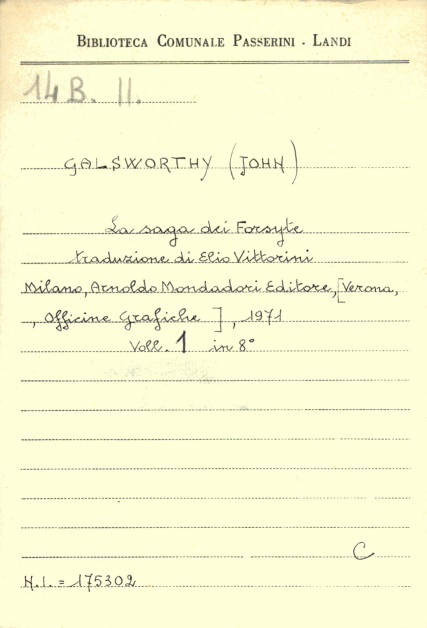 BIBLIOTECA COMUNALE PASSERINI - LANDI
14B. II.
GALSWORTHY (JOHN)
La saga dei Forsyte
traduzione di Elio Vittorini
Milano, Arnoldo Mondadori Editore, [Verona,
, Officine Grafiche ], 1971
Voll. 1 in 8°
C
N.I. = 175302